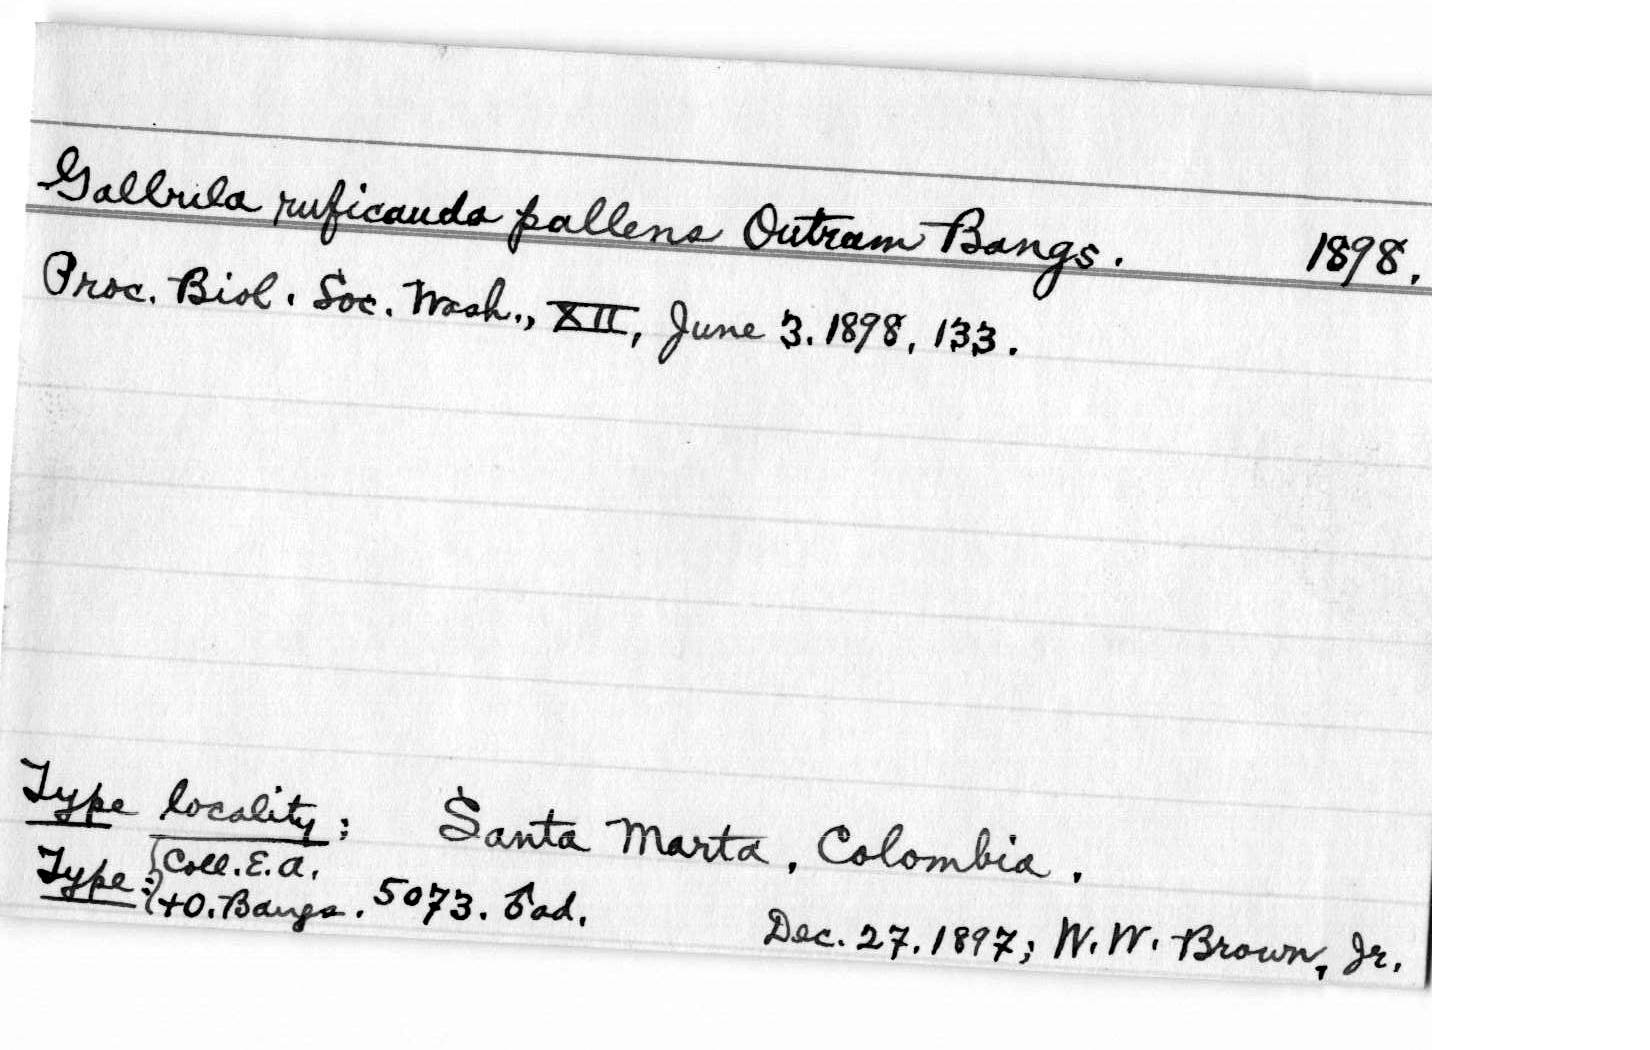 Galbula ruficauda pallens Outram Bangs. 1898.
Proc. Biol. Soc. Wash., XII, June 3. 1898, 133.
Type locality: Santa Marta, Colombia.
Type: Coll. E.A.
+O. Bangs. 5073. ♂ ad. Dec. 27. 1897; W. W. Brown, Jr.